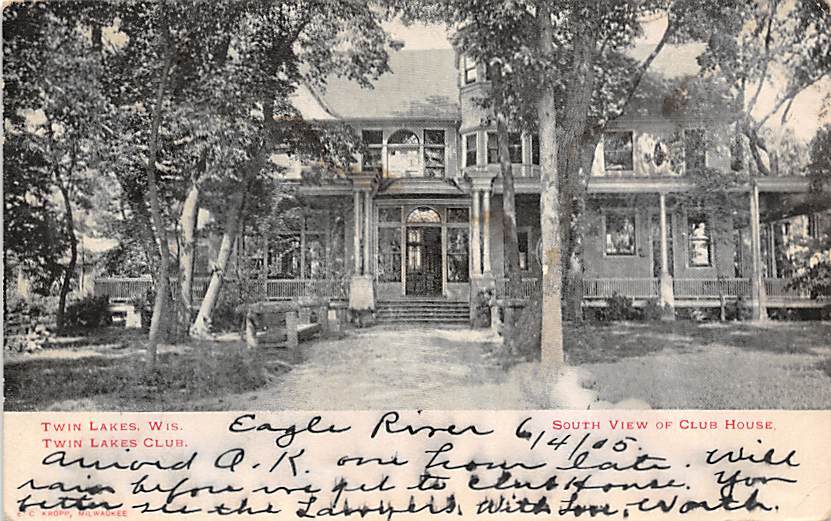 TWIN LAKES, WIS.
TWIN LAKES CLUB.
SOUTH VIEW OF CLUB HOUSE.
Eagle River 6/4/05
arrived A. K. one hour late. Will
rain before we get to Club House. You
better see the Lawyers. With Love, Worth.
E. C. KROPP, MILWAUKEE